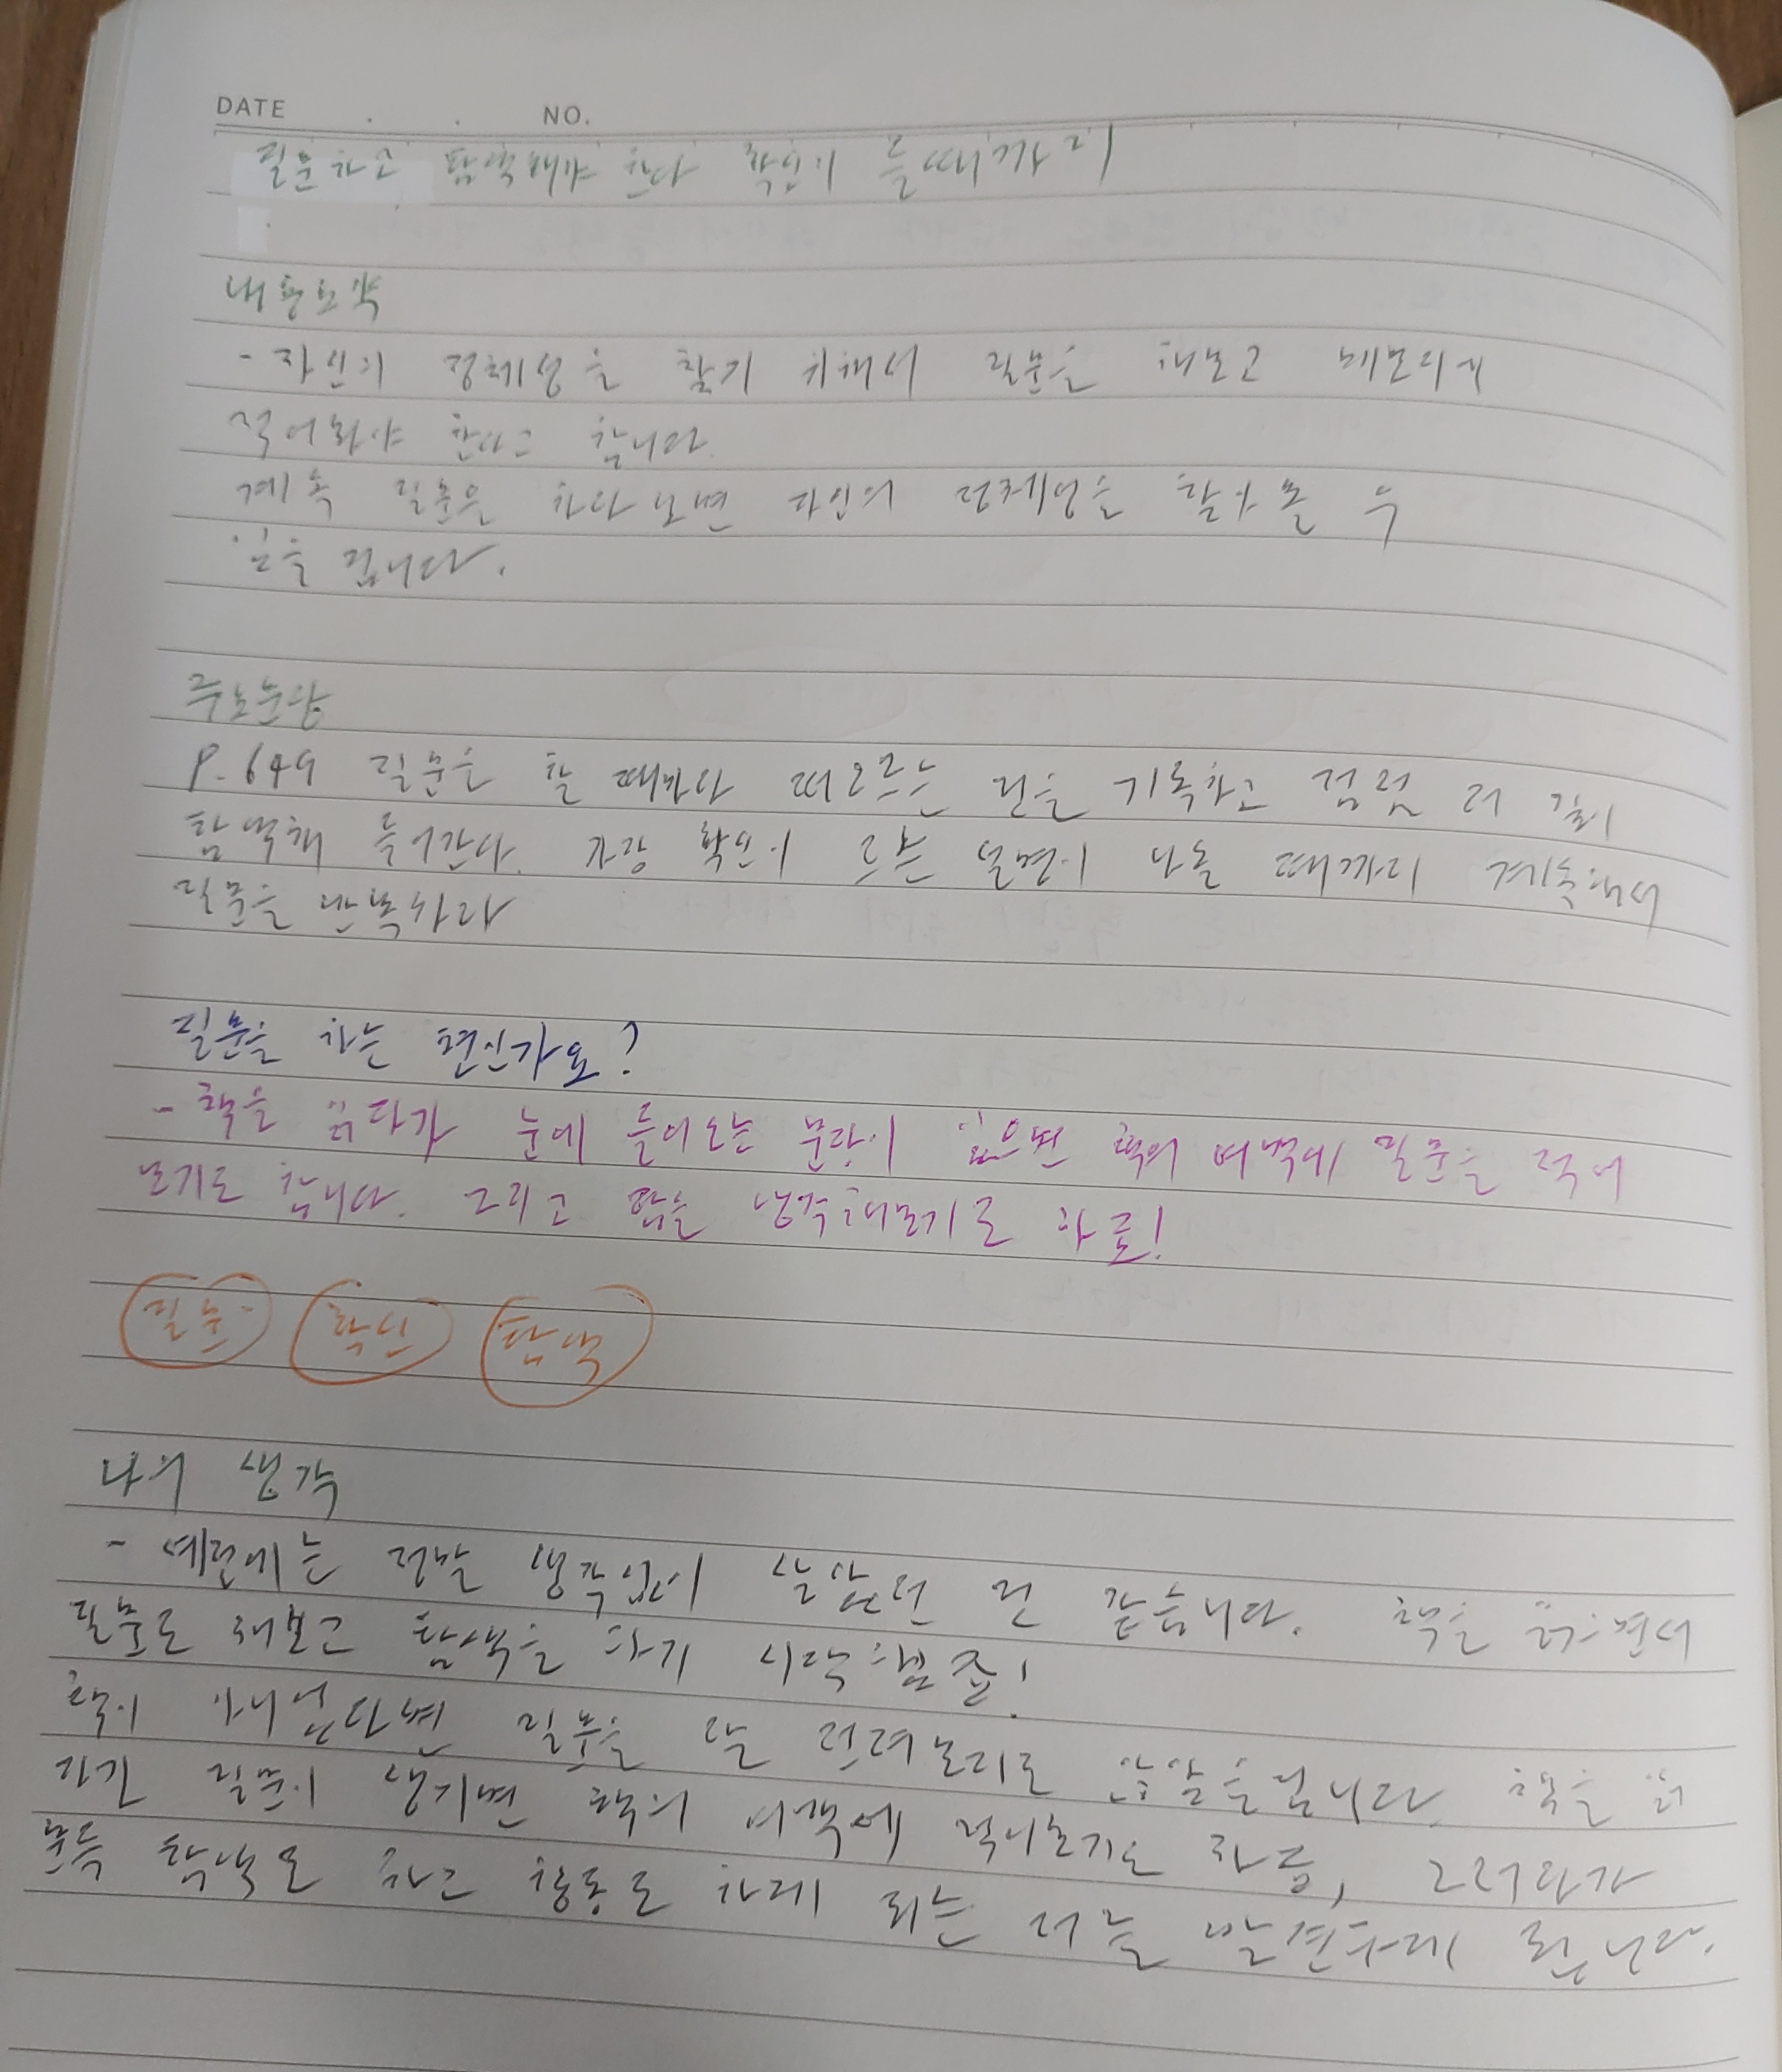 DATE . . NO.
질문하고 탐색해야 한다 확신이 들때까지
내용요약
- 자신의 정체성을 찾기 위해서 질문을 해보고
적어봐야 한다고 합니다.
계속 질문을 하다보면 자신의 정체성을 찾아볼 수
있을 겁니다.
주요문장
P.649 질문을 할 때마다 떠오르는 것을 기록하고 점점 더 깊이
탐색해 들어간다. 가장 설명이 나올 때까지 계속해서
질문을 반복하라
질문을 하는 편인가요?
- 책을 읽다가 눈에 들어오는 문장이 있으면 책의 여백에 질문을 적어
보기도 합니다. 그리고 답을 생각해보기도 하죠!
질문 확신 탐색
나의 생각
- 예전에는 정말 생각없이 살았던 것 같습니다. 책을 읽으면서
질문도 해보고 탐색을 하기 시작했죠!
책이 아니었다면 질문을 잘 던져보지도 않았을겁니다. 책을 읽
다가 질문이 생기면 책의 여백에 적어보기도 하죠, 그러다가
문득 탐색도 하고 행동도 하게 되는 저를 발견하게 됩니다.